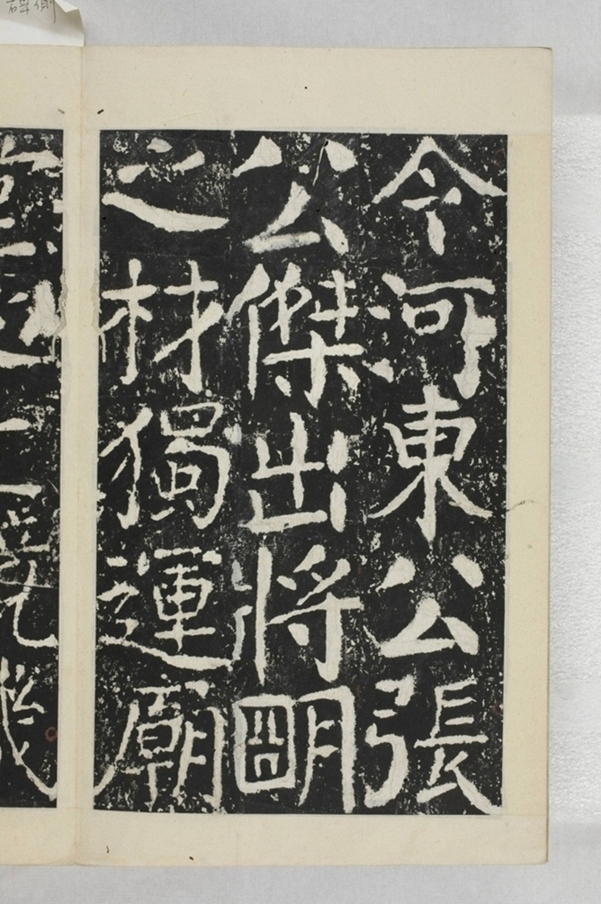 今河東公張
公傑出將朙
之材獨運廟